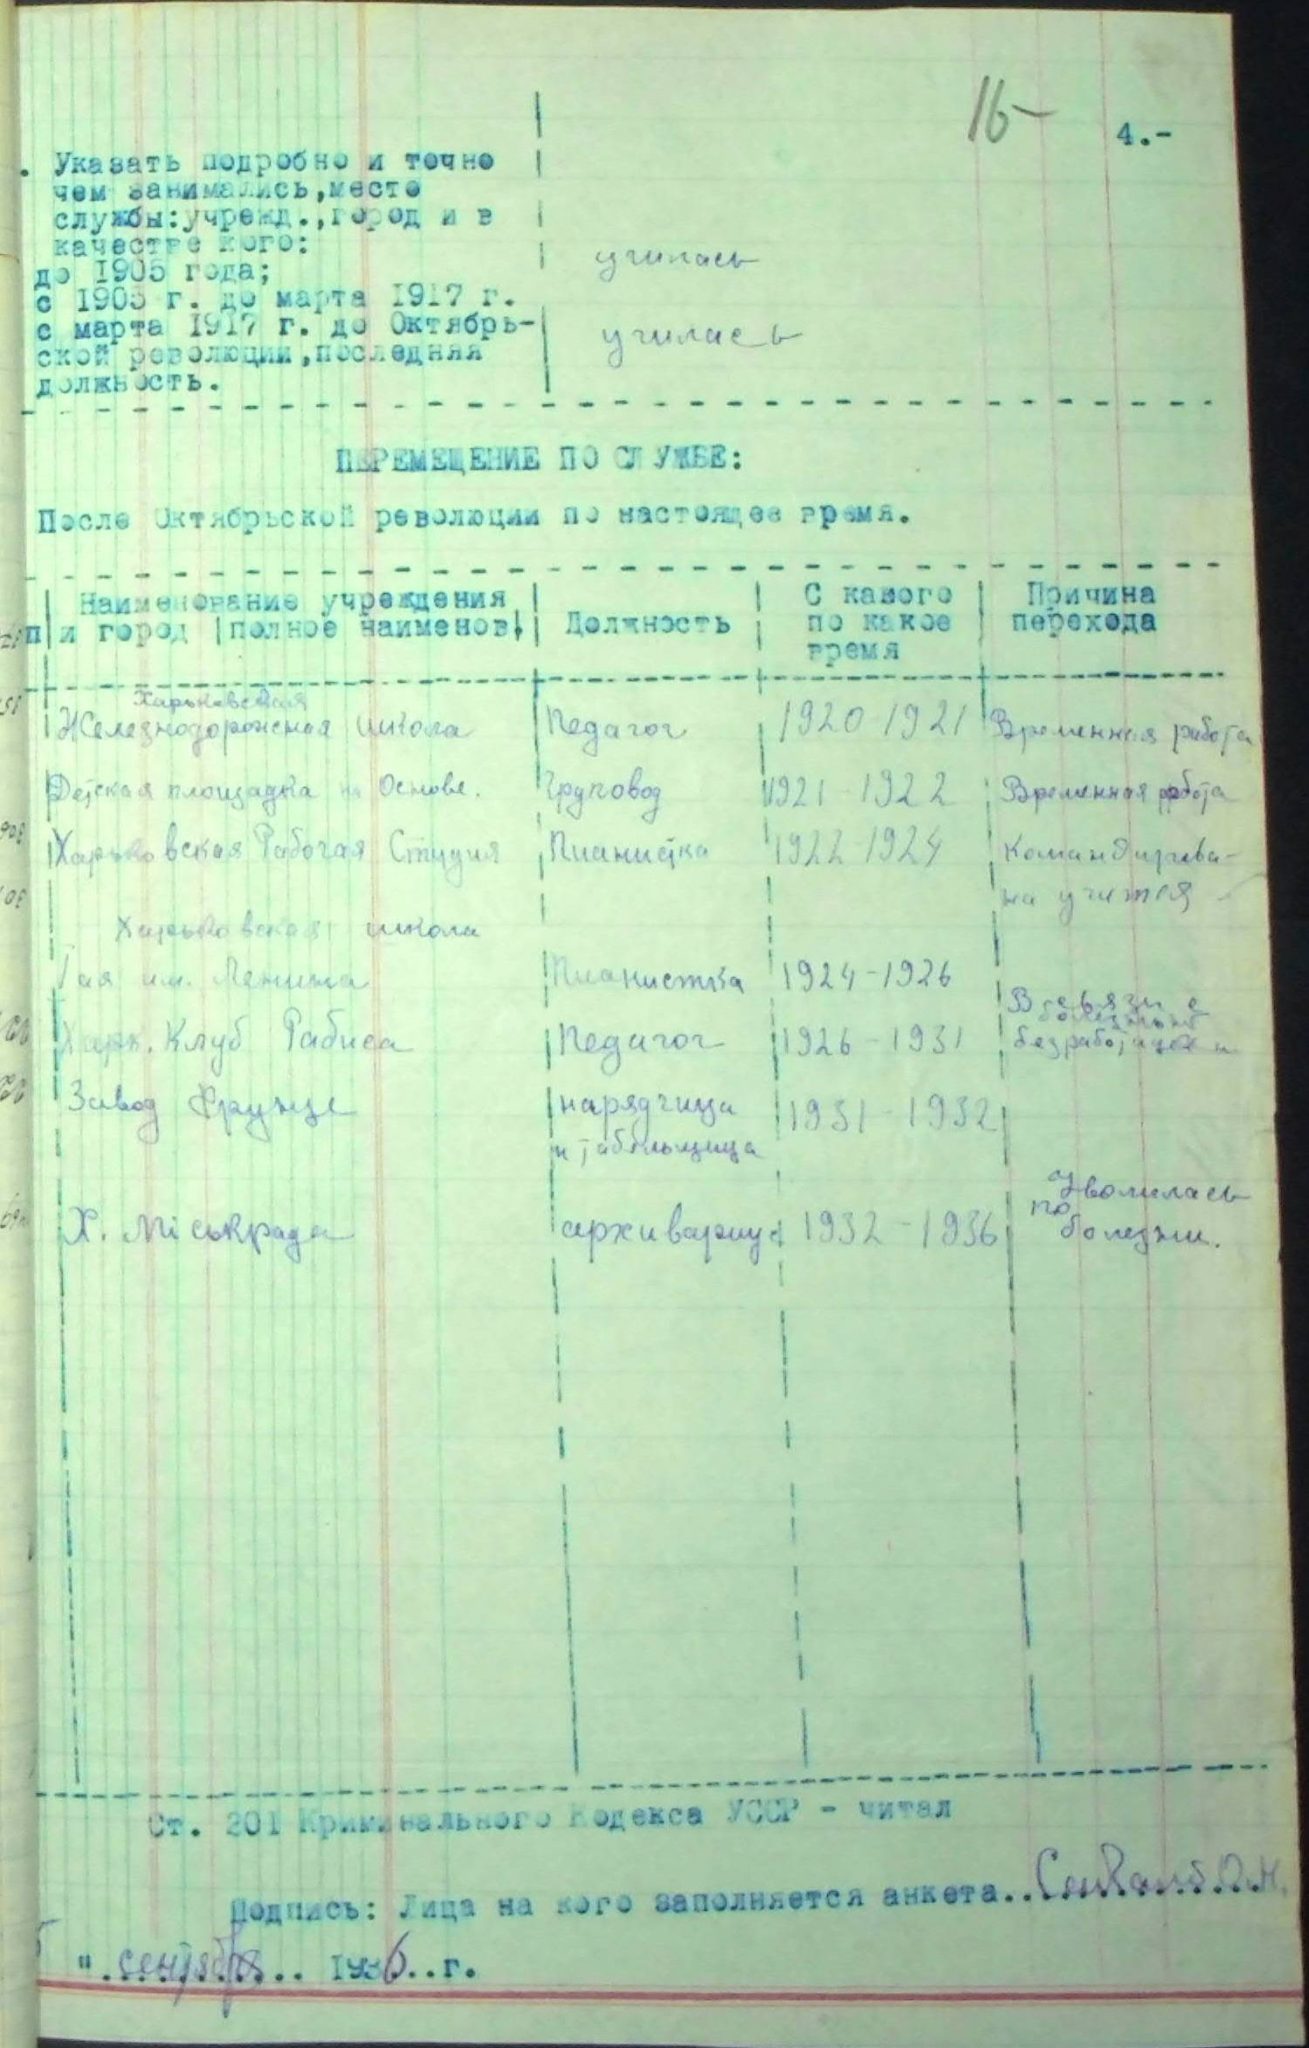 16
4.-
. Указать подробно и точно
чем занимались,место
службы:учрежд.,город и в
качестве кого:
до 1905 года; училась
с 1905 г. до марта 1917 г.
с марта 1917 г. до Октябрь- училась
ской революции,последняя
должность.
ПЕРЕМЕЩЕНИЕ ПО СЛУЖБЕ:
После Октябрьской революции по настоящее время.
Наименование учреждения | Должность | С какого | Причина
п| и город |полное наименов. | по какое | перехода
время
Харьковская
Железнодорожная школа | Педагог | 1920-1921 | Временная работа
Детская площадка на Основе. | Груповод | 1921-1922 | Временная работа
Харьковская Рабочая Студия | Пианистка | 1922-1924 | Командирова-
на учится
Харьковская школа
1ая им. Ленина | Пианистка | 1924-1926
В связи с
болезнью
Харк. Клуб Рабиса | Педагог | 1926-1931 | безработицей и
Завод Фрунзе | нарядчица | 1931-1932
и табельщица
Уволилась
Х. Міськрада | архивариус | 1932-1936 | по болезни.
Ст. 201 Криминального Кодекса УССР - читал
Подпись: Лица на кого заполняется анкета..
" сентября 1936 г.